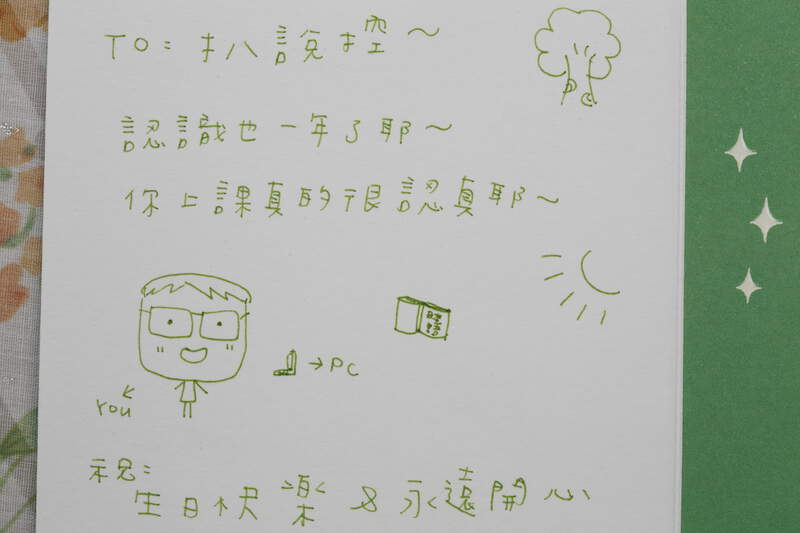 TO: 扒說控～
認識也一年了耶～
你上課真的很認真耶～
→PC
You
祝:
生日快樂 & 永遠開心